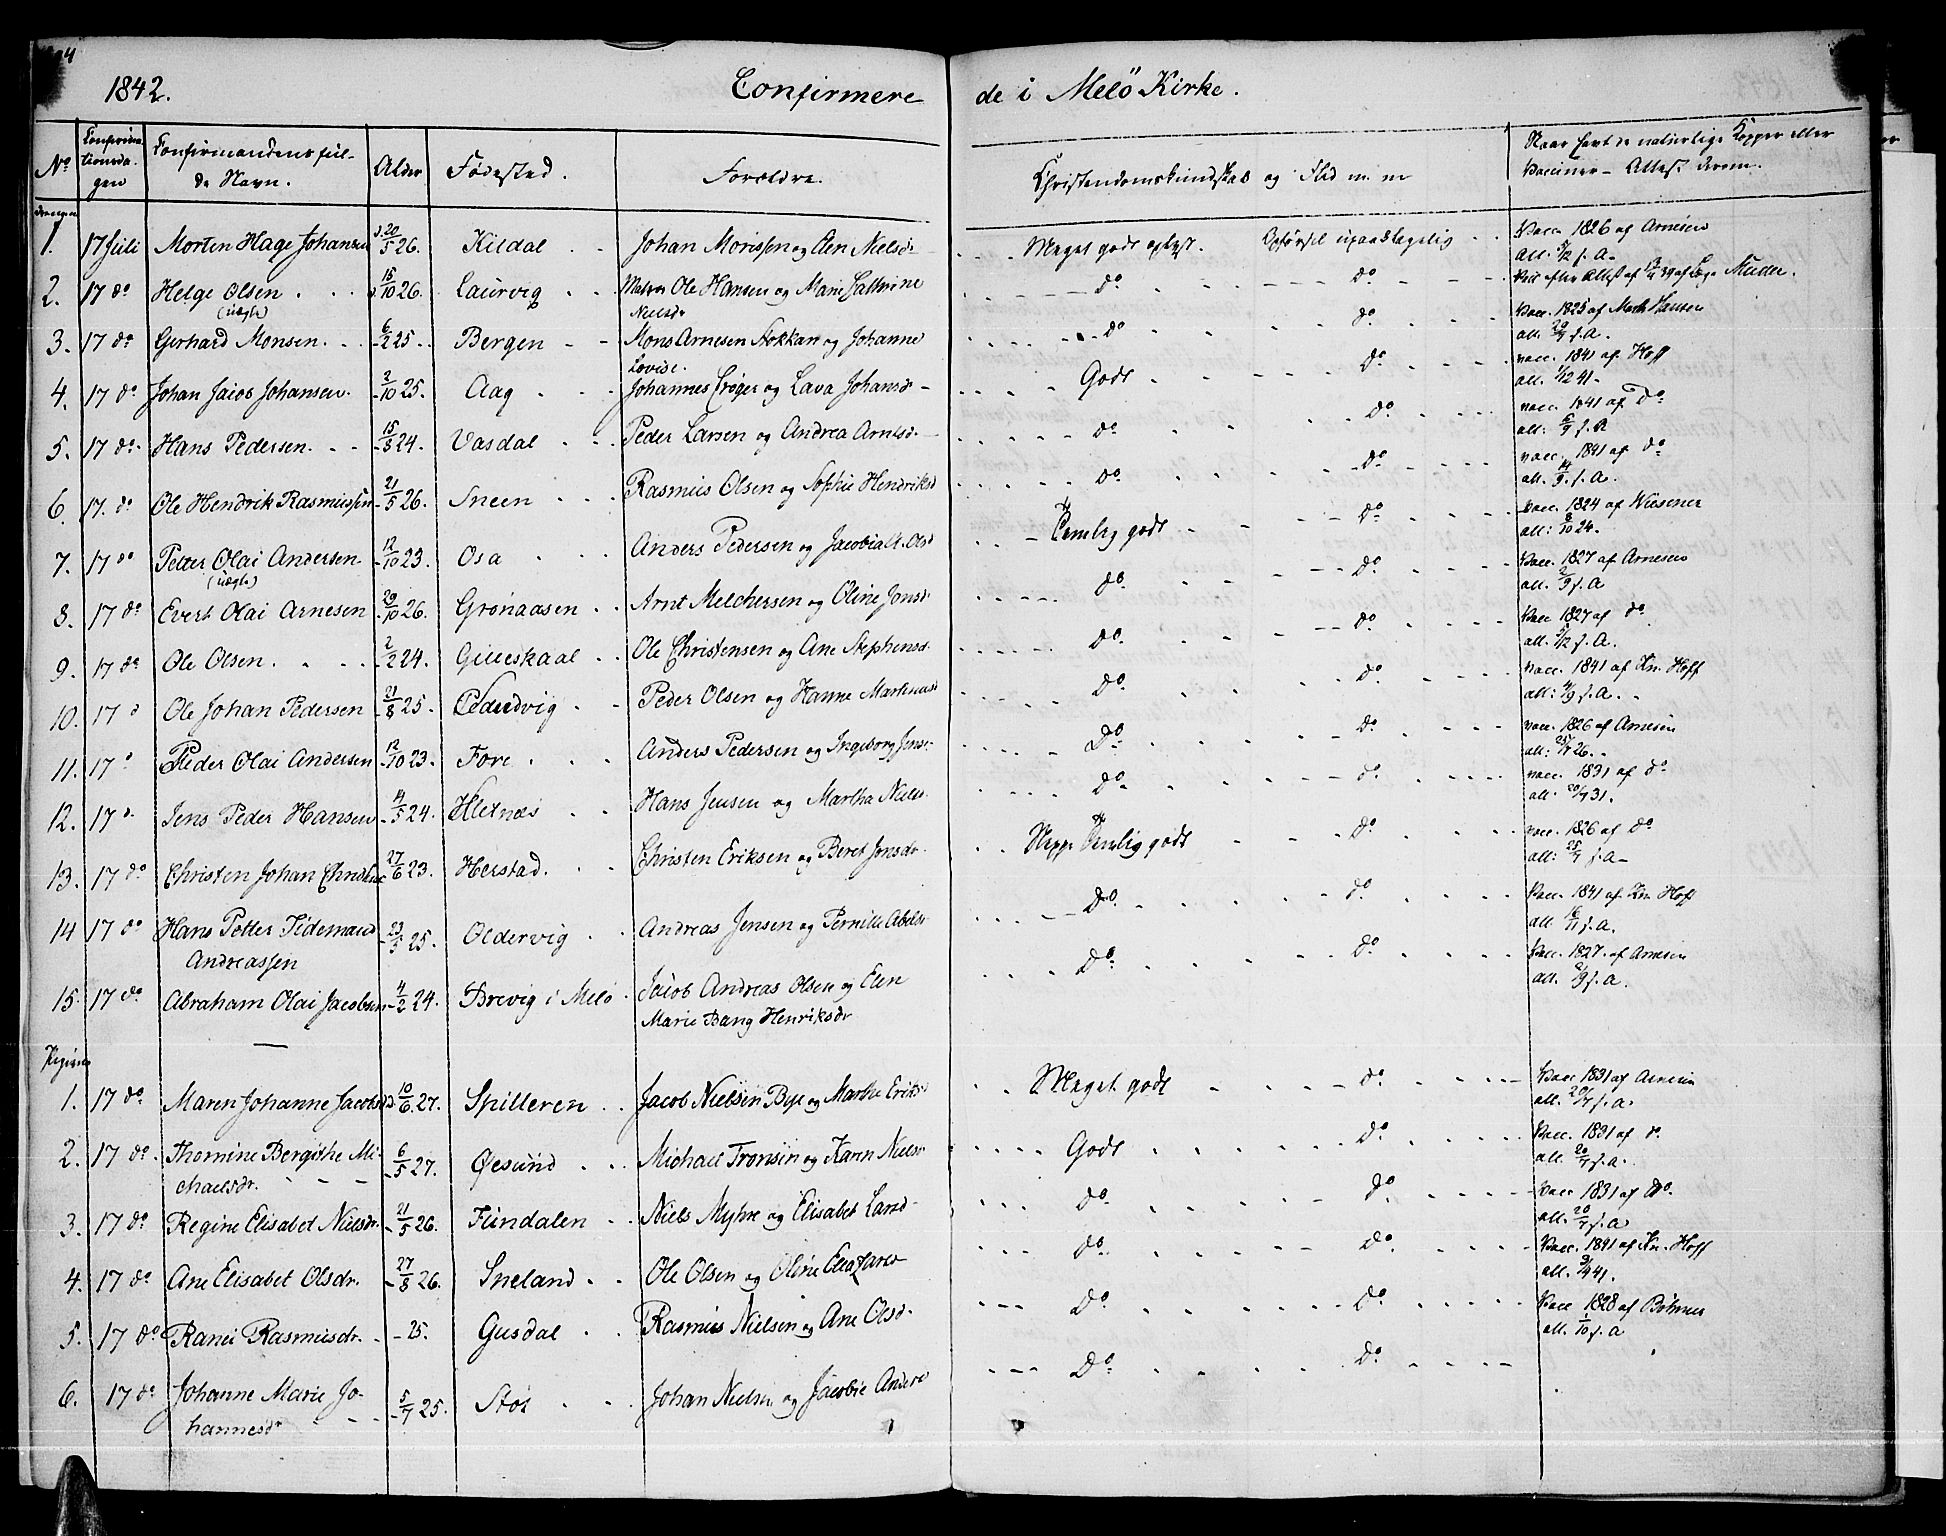 1842. Confirmere de i Melö Kirke.
No Confirmationsdagen Confirmandens fulde Navn. Alder Fødested. Forældre. Christendomskundskab og Flid m. m Naar havt de naturlige Kopper eller Vacciner - Attest derom.
Drengene
1. 17 Juli Morten Hage Johansen 20/5 26. Kildal Johan Morissen og Elen Nielsdr Meget godt oplyst. Opførsel upaaklagelig Vacc. 1826 af Arnesen
att. 5/12 s. A.
2. 17 do Helge Olsen 15/10 26. Laurvig Ole Hansen og Marie Cathrine do. do. Attest af Læge Muder.
(uægte) Nielsdr
3. 17 do Gerhard Monsen. 6/2 25. Bergen Mons Arnesen Stokkan og Johanne do. do. Vacc. 1825 af Mech Hansen
Lovise. att. s. A.
4. 17 do Johan Jacob Johansen. 2/10 25. Aag Johannes Crøger og Lava Johansdr Godt do. vacc. 1841 af Hoff
att. 1/12 41.
5. 17 do. Hans Pedersen. 15/8 24. Vasdal Peder Larsen og Andrea Arntsd. do. do. vacc. 1841 af do.
att: 6/9 s. A
6. 17. do Ole Hendrik Rasmussen 21/5 26. Sneen Rasmus Olsen og Sophie Hendriksd do. do. vacc. 1841 af do.
att. 14/9. s. A.
7. 17 do Petter Olai Andersen 12/10 23. Osa Anders Pedersen og Jacobia Temlig godt do. vacc. 1824 af Wiesener
(uægte) att: 8/10 24.
8. 17 do Evert Olai Arnesen 29/10 26. Grønaasen Arnt Melchersen og Oline Jonsd do. do. Vacc. 1827 af Arnesen
att. 2/9 s. A
9. 17 do Ole Olsen. 2/2 24. Gilleskaal Ole Christensen og Ane Stephensd. do. do. Vacc 1827 af do.
att. 5/12 s. A.
10. 17 d Ole Johan Pedersen 21/8 25. Peder Olsen og Hanne Martinusd do. do. Vacc. 1841 af Kn. Hoff
att: 4/9 s. A.
11. 17 d Peder Olai Andersen 12/10 23. Fore Anders Pedersen og Ingeborg Do. do. vacc. 1826 af Arnesen
att: 26.
12. 17 d. Jens Peder Hansen 4/5 24. Kletnæs Hans Jensen og Martha Niels do. do. vacc. 1831 af do.
att: 31.
13. 17 do Christen Johan 27/6 23. Herstad. Christen Eriksen og Beret Jonsdr. Neppe Temlig godt do. vacc. 1826 af do.
att: s. A
14 17 do Hans Petter Tidemand 23/3 25. Oldervig Andreas Jensen og Pernille Abels Do. do. Vacc. 1841 af Kn. Hoff
Andreassen att. s. A.
15. 17 do. Abraham Olai Jacobsen 4/2 24. Brevig i Melø. Jacob Andreas Olsen og Elen do. do. Vacc. 1827. af Arnesen
Marie Bang Henriksdr att. s. A.
Pigerne
1. 17 do. Maren Johanne Jacobsd 10/6 27. Spilleren Jacob Nielsen Bye og Martha Eriks Meget godt do. Vacc. 1831 af Arnesen
att. s. A.
2. 17 do. Thomine Bergithe Mi- 6/5 27. Øesund Michael Tronsen og Karen Nielsd Godt do. Vacc. 1831 af d.
chaelsdr. att. s. A.
3. 17 do. Regine Elisabet Nielsdr. 21/5 26. Fundalen Niels Myhre og Elisabet Land do do. Vacc. 1831 af do.
att. s. A
4. 17 do. Ane Elisabet Olsdr. 27/8 26. Sneland Ole Olsen og Oline do. do. Vacc. 1841 af Kn. Hoff
att. 41.
5. 17 do Ranei Rasmusdr. 25. Gusdal Rasmus Nielsen og Ane Olsd. Do. Do. Vacc 1828 af Böhmer
att. 1/10 s. A
6. 17 do. Johanne Marie Jo- 5/7 25. Støt Johan Nielsen og Jacobie Anders Do. do.
hannesdr